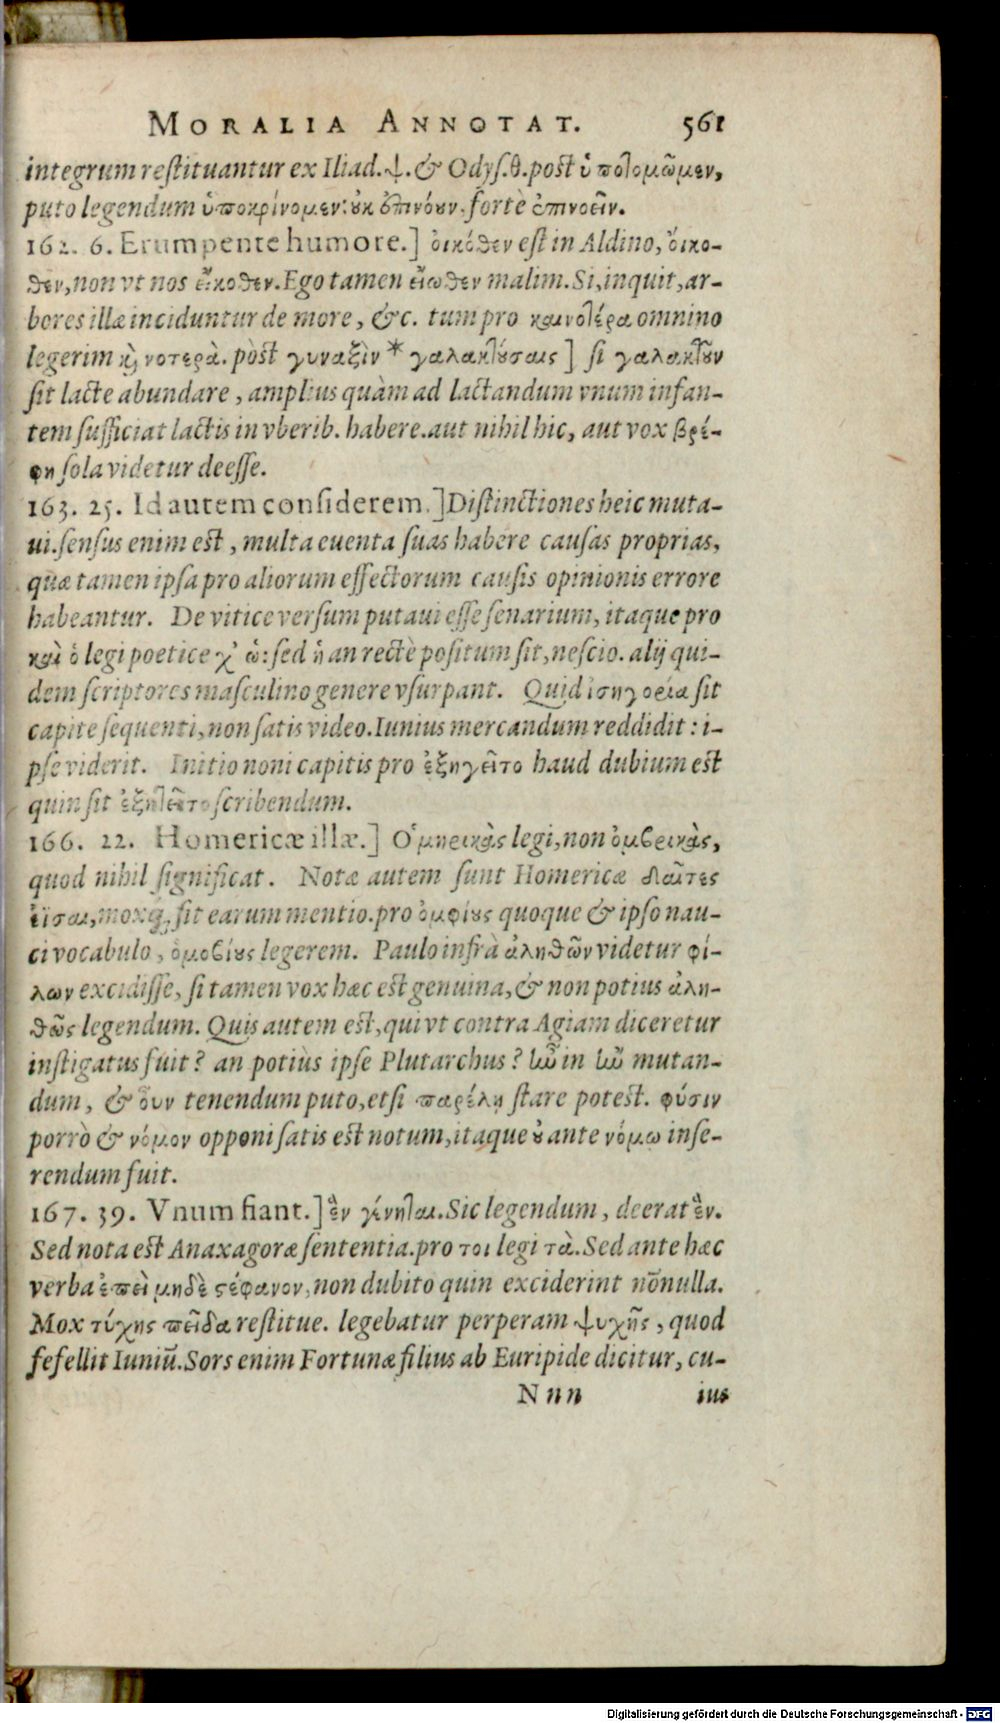 MORALIA ANNOTAT. 561
integrum restituantur ex Iliad.ψ.& Odys.θ.post ὑποτομῶμεν,
puto legendum ὑποκρίνομεν: ȣκ ἐπινόȣν. fortè ἐπινοεῖν.
162. 6. Erumpente humore.] οἰκόθεν est in Aldino, οἴκο-
θεν, non vt nos εἴκοθεν. Ego tamen εἴωθεν malim. Si, inquit, ar-
bores illæ inciduntur de more, &c. tum pro καινοτέρα omnino
legerim κỳ νοτερὰ. pòst γυναξὶν * γαλακτȣσαις ] si γαλακτȣν
sit lacte abundare, amplius quàm ad lactandum vnum infan-
tem sufficiat lactis in vberib. habere. aut nihil hic, aut vox βρέ-
φη sola videtur deesse.
163. 25. Id autem considerem.] Distinctiones heic muta-
ui. sensus enim est, multa euenta suas habere causas proprias,
quæ tamen ipsa pro aliorum effectorum causis opinionis errore
habeantur. De vitice versum putaui esse senarium, itaque pro
καὶ ὁ legi poetice χ' ὡ: sed ἡ an rectè positum sit, nescio. alij qui-
dem scriptores masculino genere vsurpant. Quid ἰσηγορία sit
capite sequenti, non satis video. Iunius mercandum reddidit: i-
pse viderit. Initio noni capitis pro ἐξηγεῖτο haud dubium est
quin sit ἐξητεῖτο scribendum.
166. 22. Homericæ illæ.] Ὁμηρικὰς legi, non ὀμβρικὰς,
quod nihil significat. Notæ autem sunt Homericæ δαῖτες
ἐῖσαι, moxq́; sit earum mentio. pro ὀμφίȣς quoque & ipso nau-
ci vocabulo, ὁμοβίȣς legerem. Paulo infrà ἀληθῶν videtur φί-
λων excidisse, si tamen vox hæc est genuina, & non potius ἀλη-
θῶς legendum. Quis autem est, qui vt contra Agiam diceretur
instigatus fuit? an potiùs ipse Plutarchus? in mutan-
dum, & οὖν tenendum puto, etsi παρέλη stare potest. φύσιν
porrò & νόμον opponi satis est notum, itaque ȣ ante νόμω inse-
rendum fuit.
167. 39. Vnum fiant.] ἓν γίνηται. Sic legendum, deerat ἓν.
Sed nota est Anaxagoræ sententia. pro τοι legi τὰ. Sed ante hæc
verba ἐπεὶ μηδὲ ςέφανον, non dubito quin exciderint nōnulla.
Mox τύχης παῖδα restitue. legebatur perperam ψυχῆς, quod
fefellit Iuniū. Sors enim Fortunæ filius ab Euripide dicitur, cu-
Nnn ius
Digitalisierung gefördert durch die Deutsche Forschungsgemeinschaft - DFG